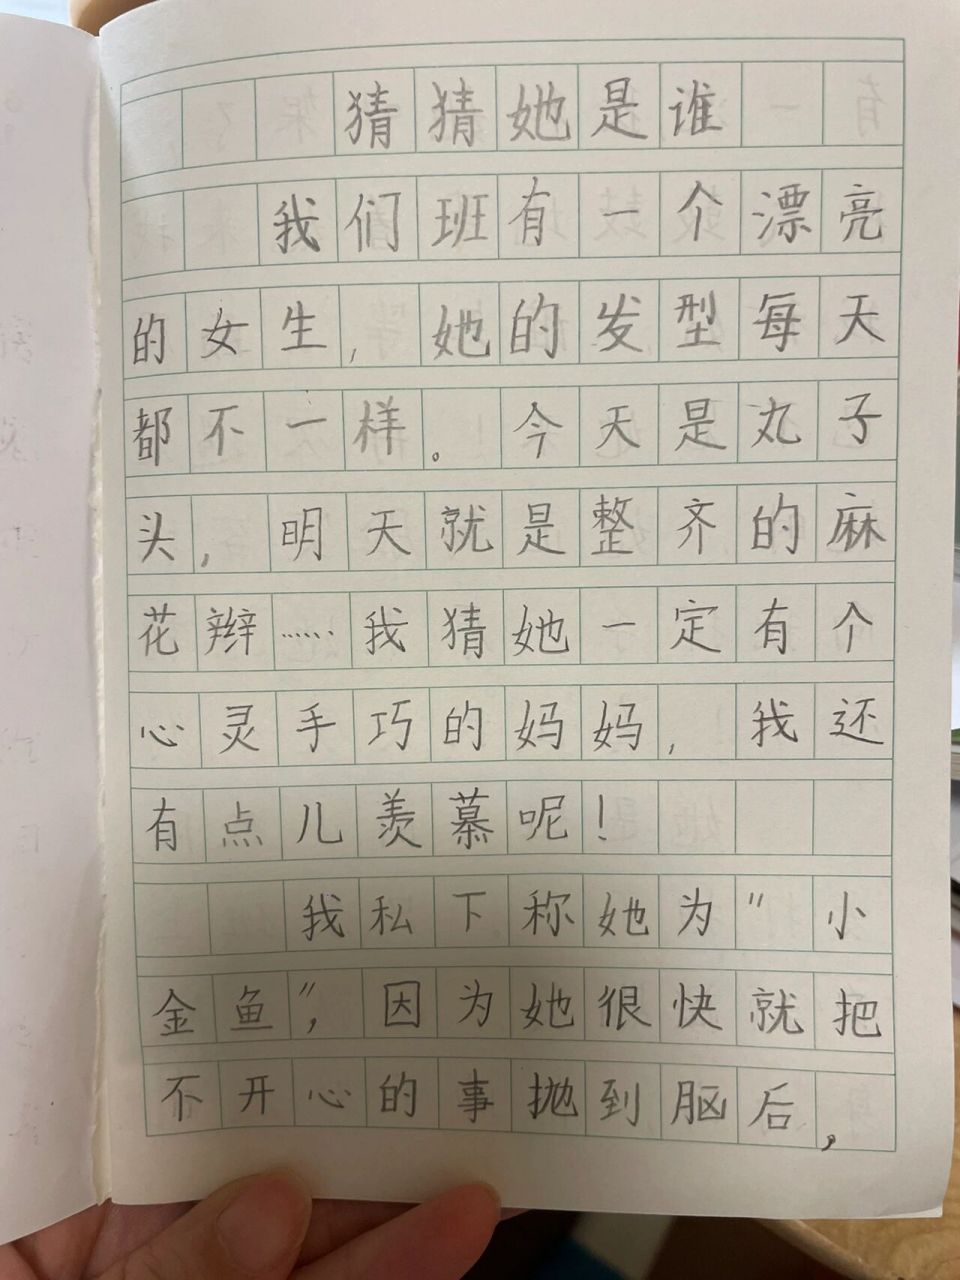 猜猜她是谁
我们班有一个漂亮
的女生，她的发型每天
都不一样。今天是丸子
头，明天就是整齐的麻
花辫……我猜她一定有个
心灵手巧的妈妈，我还
有点儿羡慕呢！
我私下称她为“小
金鱼”，因为她很快就把
不开心的事抛到脑后，